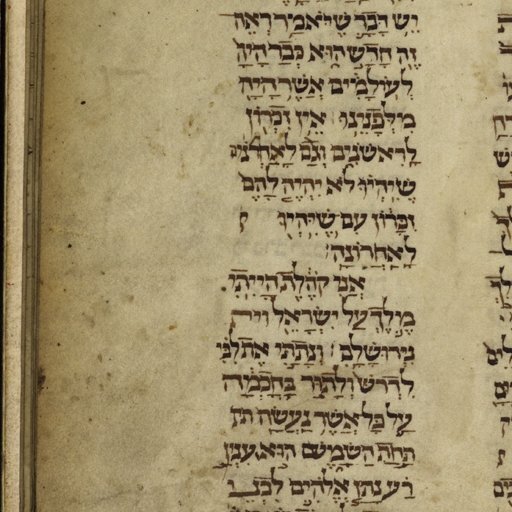 יש דבר שיאמר ראה
זה חדש הוא כבר היה
לעולמים אשר היה
מלפנינו אין זכרון
לראשנים וגם לאחרנים
שיהיו לא יהיה להם
זכרון עם שיהיו
לאחרונה
אני קהלת הייתי
מלך על ישראל
בירושלם ונתתי את לבי
לדרש ולתור בחכמה
על כל אשר נעשה
תחת השמים הוא ענין
רע נתן אלהים לבני